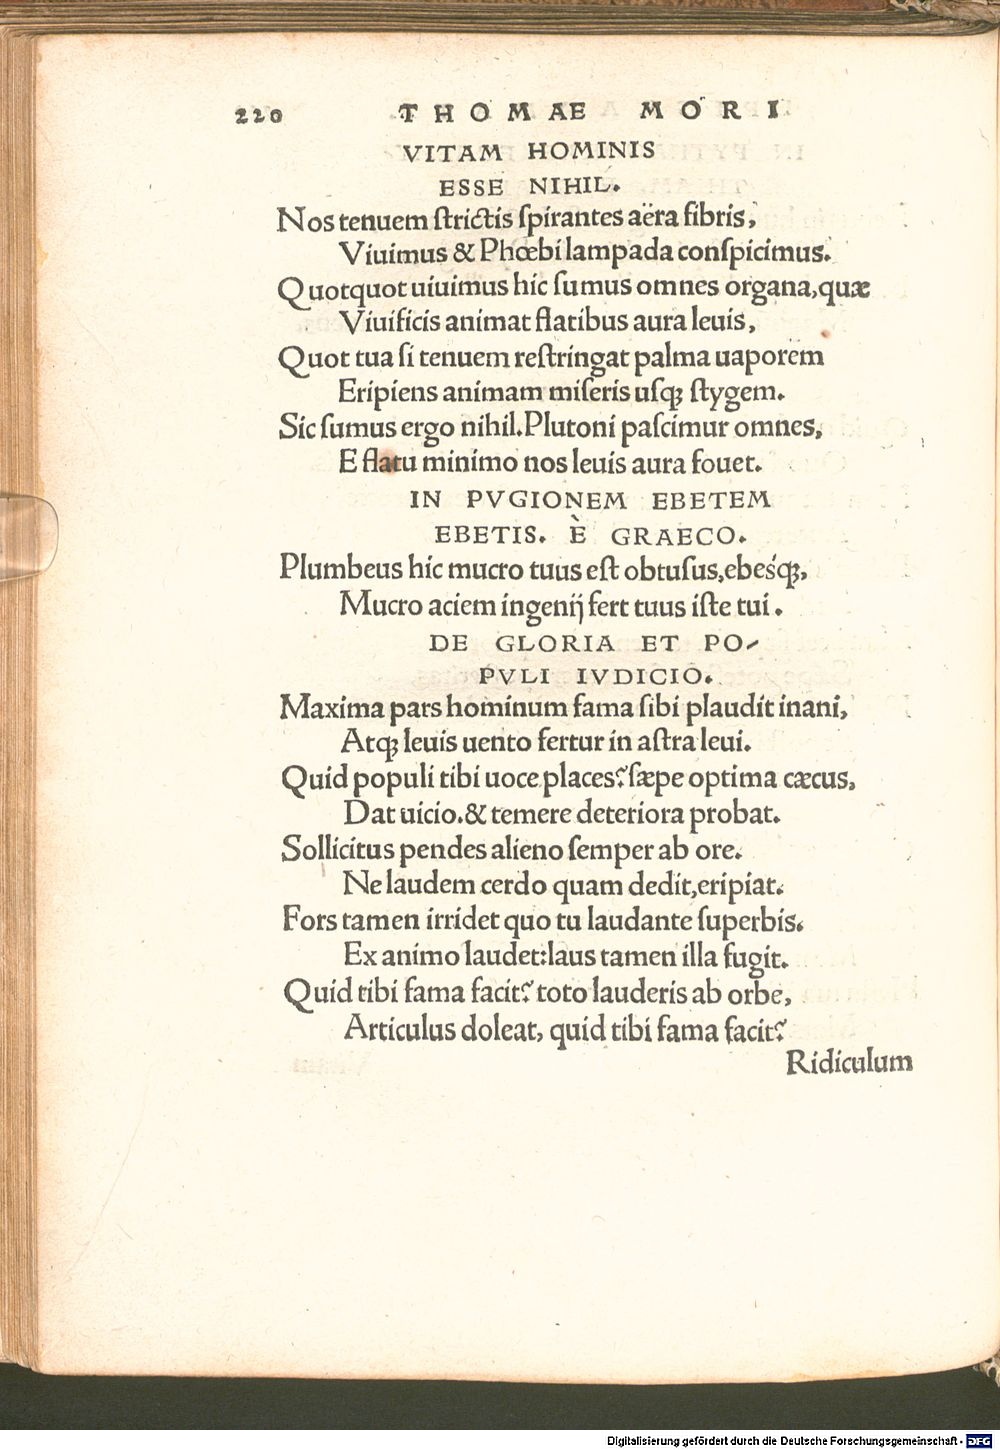 220 THOMAE MORI
VITAM HOMINIS
ESSE NIHIL.
Nos tenuem ſtrictis ſpirantes aëra fibris,
Viuimus & Phœbi lampada conſpicimus.
Quotquot uiuimus hic ſumus omnes organa, quæ
Viuificis animat flatibus aura leuis,
Quot tua ſi tenuem reſtringat palma uaporem
Eripiens animam miſeris uſqꝫ ſtygem.
Sic ſumus ergo nihil. Plutoni paſcimur omnes,
E flatu minimo nos leuis aura fouet.
IN PVGIONEM EBETEM
EBETIS. È GRAECO.
Plumbeus hic mucro tuus eſt obtuſus, ebeśqꝫ,
Mucro aciem ingenij fert tuus iſte tui.
DE GLORIA ET PO-
PVLI IVDICIO.
Maxima pars hominum fama ſibi plaudit inani,
Atqꝫ leuis uento fertur in aſtra leui.
Quid populi tibi uoce places? ſæpe optima cæcus,
Dat uicio. & temere deteriora probat.
Sollicitus pendes alieno ſemper ab ore.
Ne laudem cerdo quam dedit, eripiat.
Fors tamen irridet quo tu laudante ſuperbis.
Ex animo laudet: laus tamen illa fugit.
Quid tibi fama facit? toto lauderis ab orbe,
Articulus doleat, quid tibi fama facit?
Ridiculum
Digitalisierung gefördert durch die Deutsche Forschungsgemeinschaft - DFG